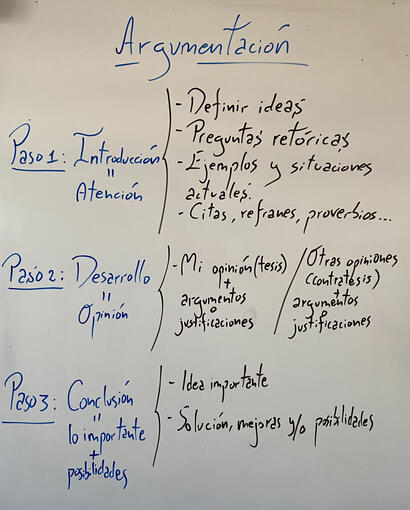 Argumentación
Paso 1: Introducción
=
Atención
- Definir ideas
- Preguntas retóricas
- Ejemplos y situaciones
actuales.
- Citas, refranes, proverbios...
Paso 2: Desarrollo
=
Opinión
- Mi opinión (tesis)
+
argumentos
o
justificaciones
Otras opiniones
(contratesis)
+
argumentos
o
justificaciones
Paso 3: Conclusión
=
lo importante
+
posibilidades
- Idea importante
- Solución, mejoras y/o posibilidades